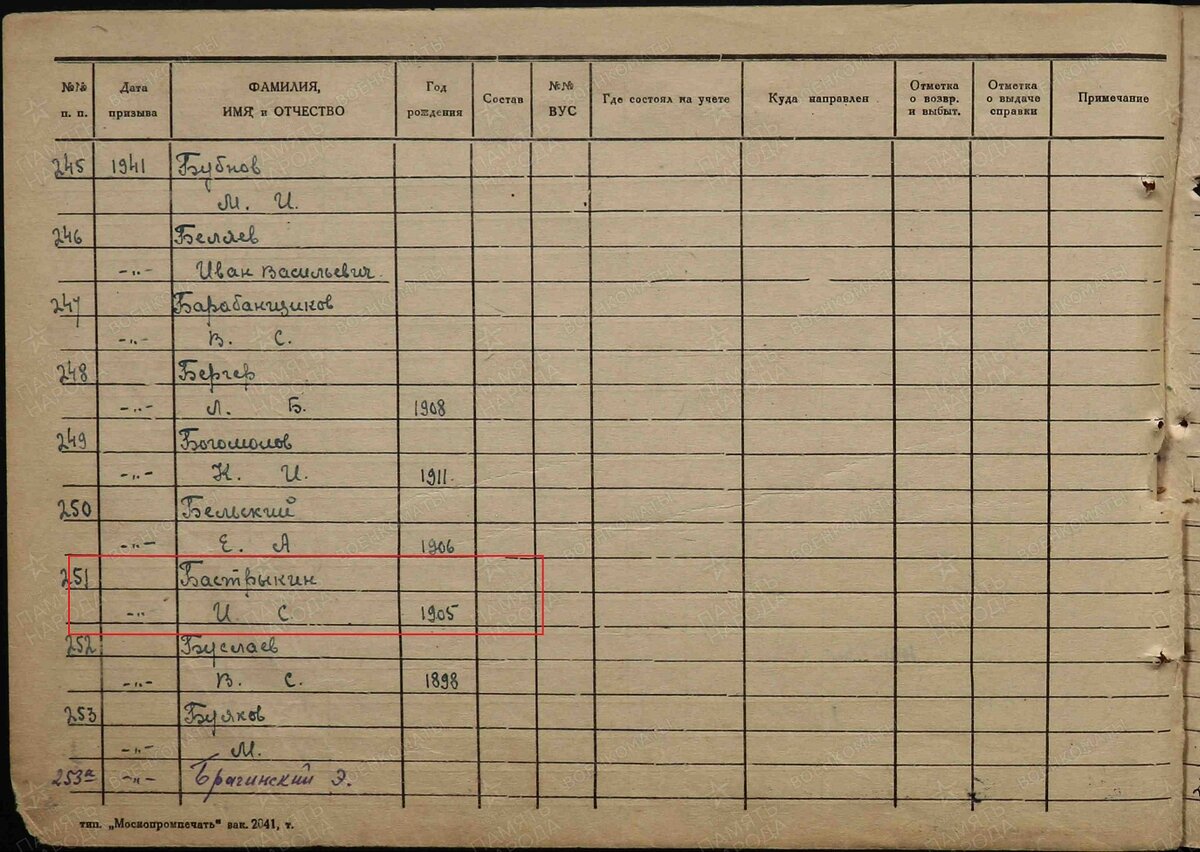 №№ п. п. Дата призыва ФАМИЛИЯ, ИМЯ и ОТЧЕСТВО Год рождения Состав №№ ВУС Где состоял на учете Куда направлен Отметка о возвр. и выбыт. Отметка о выдаче справки Примечание
245 1941 Бубнов
М. И.
246 Беляев
-„- Иван Васильевич.
247 Барабанщиков
-„- В. С.
248 Бергер
-„- Л. Б. 1908
249 Богомолов
-„- К. И. 1911.
250 Бельский
-„- Е. А 1906
251 Бастрыкин
-„- И. С 1905
252 Буслаев
-„- В. С. 1898
253 Буяков
-„- М.
253а -„- Брагинский Э.
тип. „Мосиопромпечать“ зак. 2041, т.
ПАМЯТЬ НАРОДА
ВОЕНКОМАТЫ